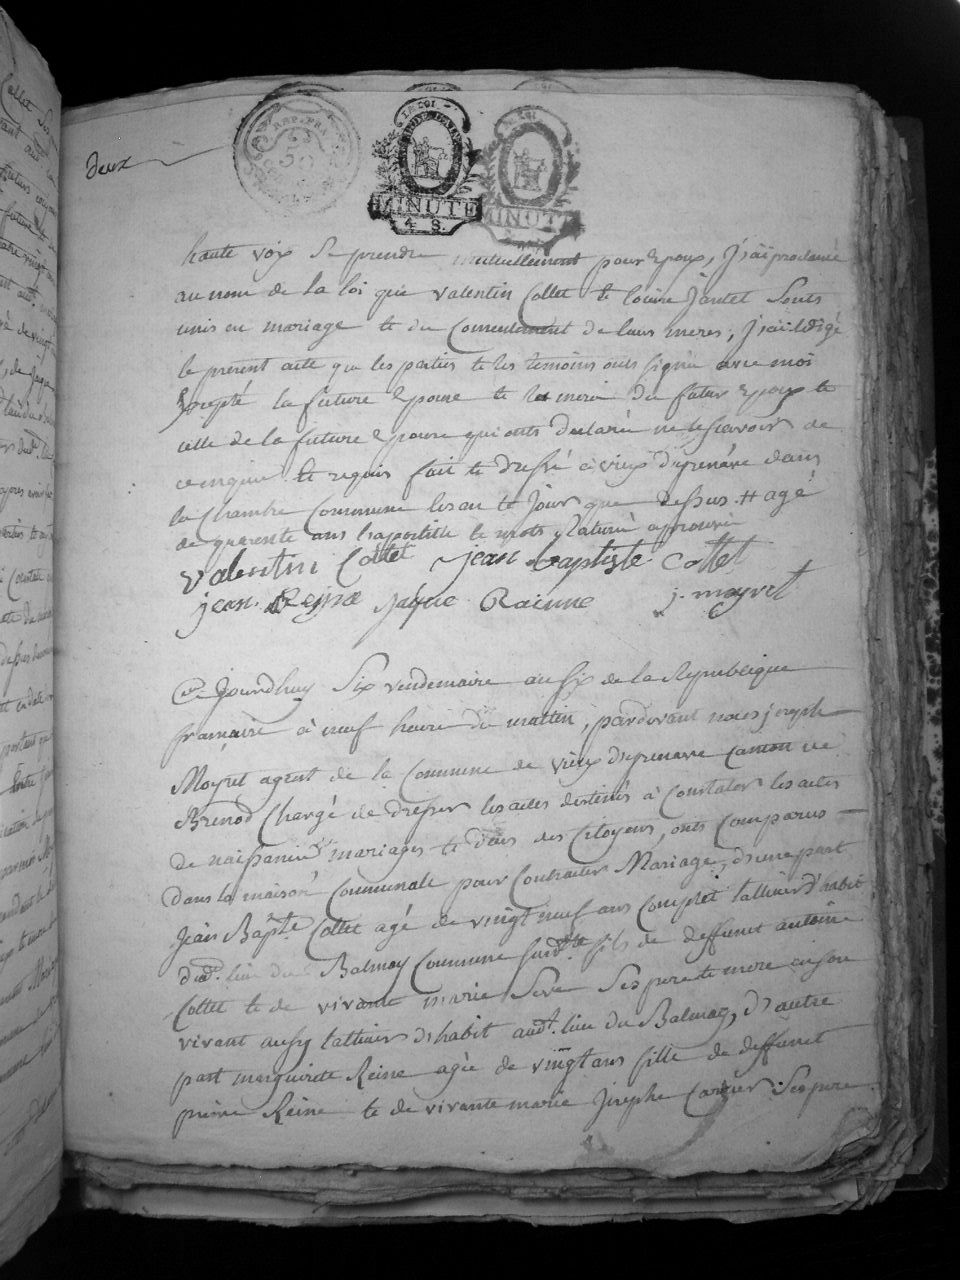 deux
REP. FRA
50
LE ROI
MINUTE
4 S.
MINUTE
haute voix se prendre mutuellement pour Epoux, J'ai proclamé
au nom de la loi que valentin Collet te louise Jantet sonts
unis en mariage te du Consentement de leurs meres, J'ai rédigé
le présent acte que les parties te les témoins onts signé avec moi
Excepté la future Epouse te la mere du futur Epoux te
celle de la future Epouse qui onts déclaré ne le scavoir de
ce enquis te requis fait te dressé à vieux d'izenave dans
la Chambre Commune les an te Jour que dessus # agé
de quarente ans l'apostille te mots Raturé approuvé
valentin Collet jean baptiste collet
jean Reine jaque Raimme j. moyret
Ce-Jourdhuy Six vendemaire an six de la Republique
francaise à neuf heure du mattin, pardevant nous joseph
Moyret agent de la Commune de vieux d'izenave canton de
Brenod Chargé de dresser les actes destinés à Constater les actes
de naissance mariages te dècés des Citoyens, onts Comparus
dans la maison Communale pour Contracter Mariage, d'une part
Jean Bapte. Collet agé de vingt neuf ans Complet d'habit
dud. lieu du Balmay Commune susdte fils de deffunct antoine
Collet te de vivante marie Seve Ses pere te mere en son
vivant aussy d'habit audt. lieu du Balmay, d'autre
part marguirite Reine agée de vingt ans fille de deffunct
pierre Reine te de vivante marie Josephe Carrier Ses pere